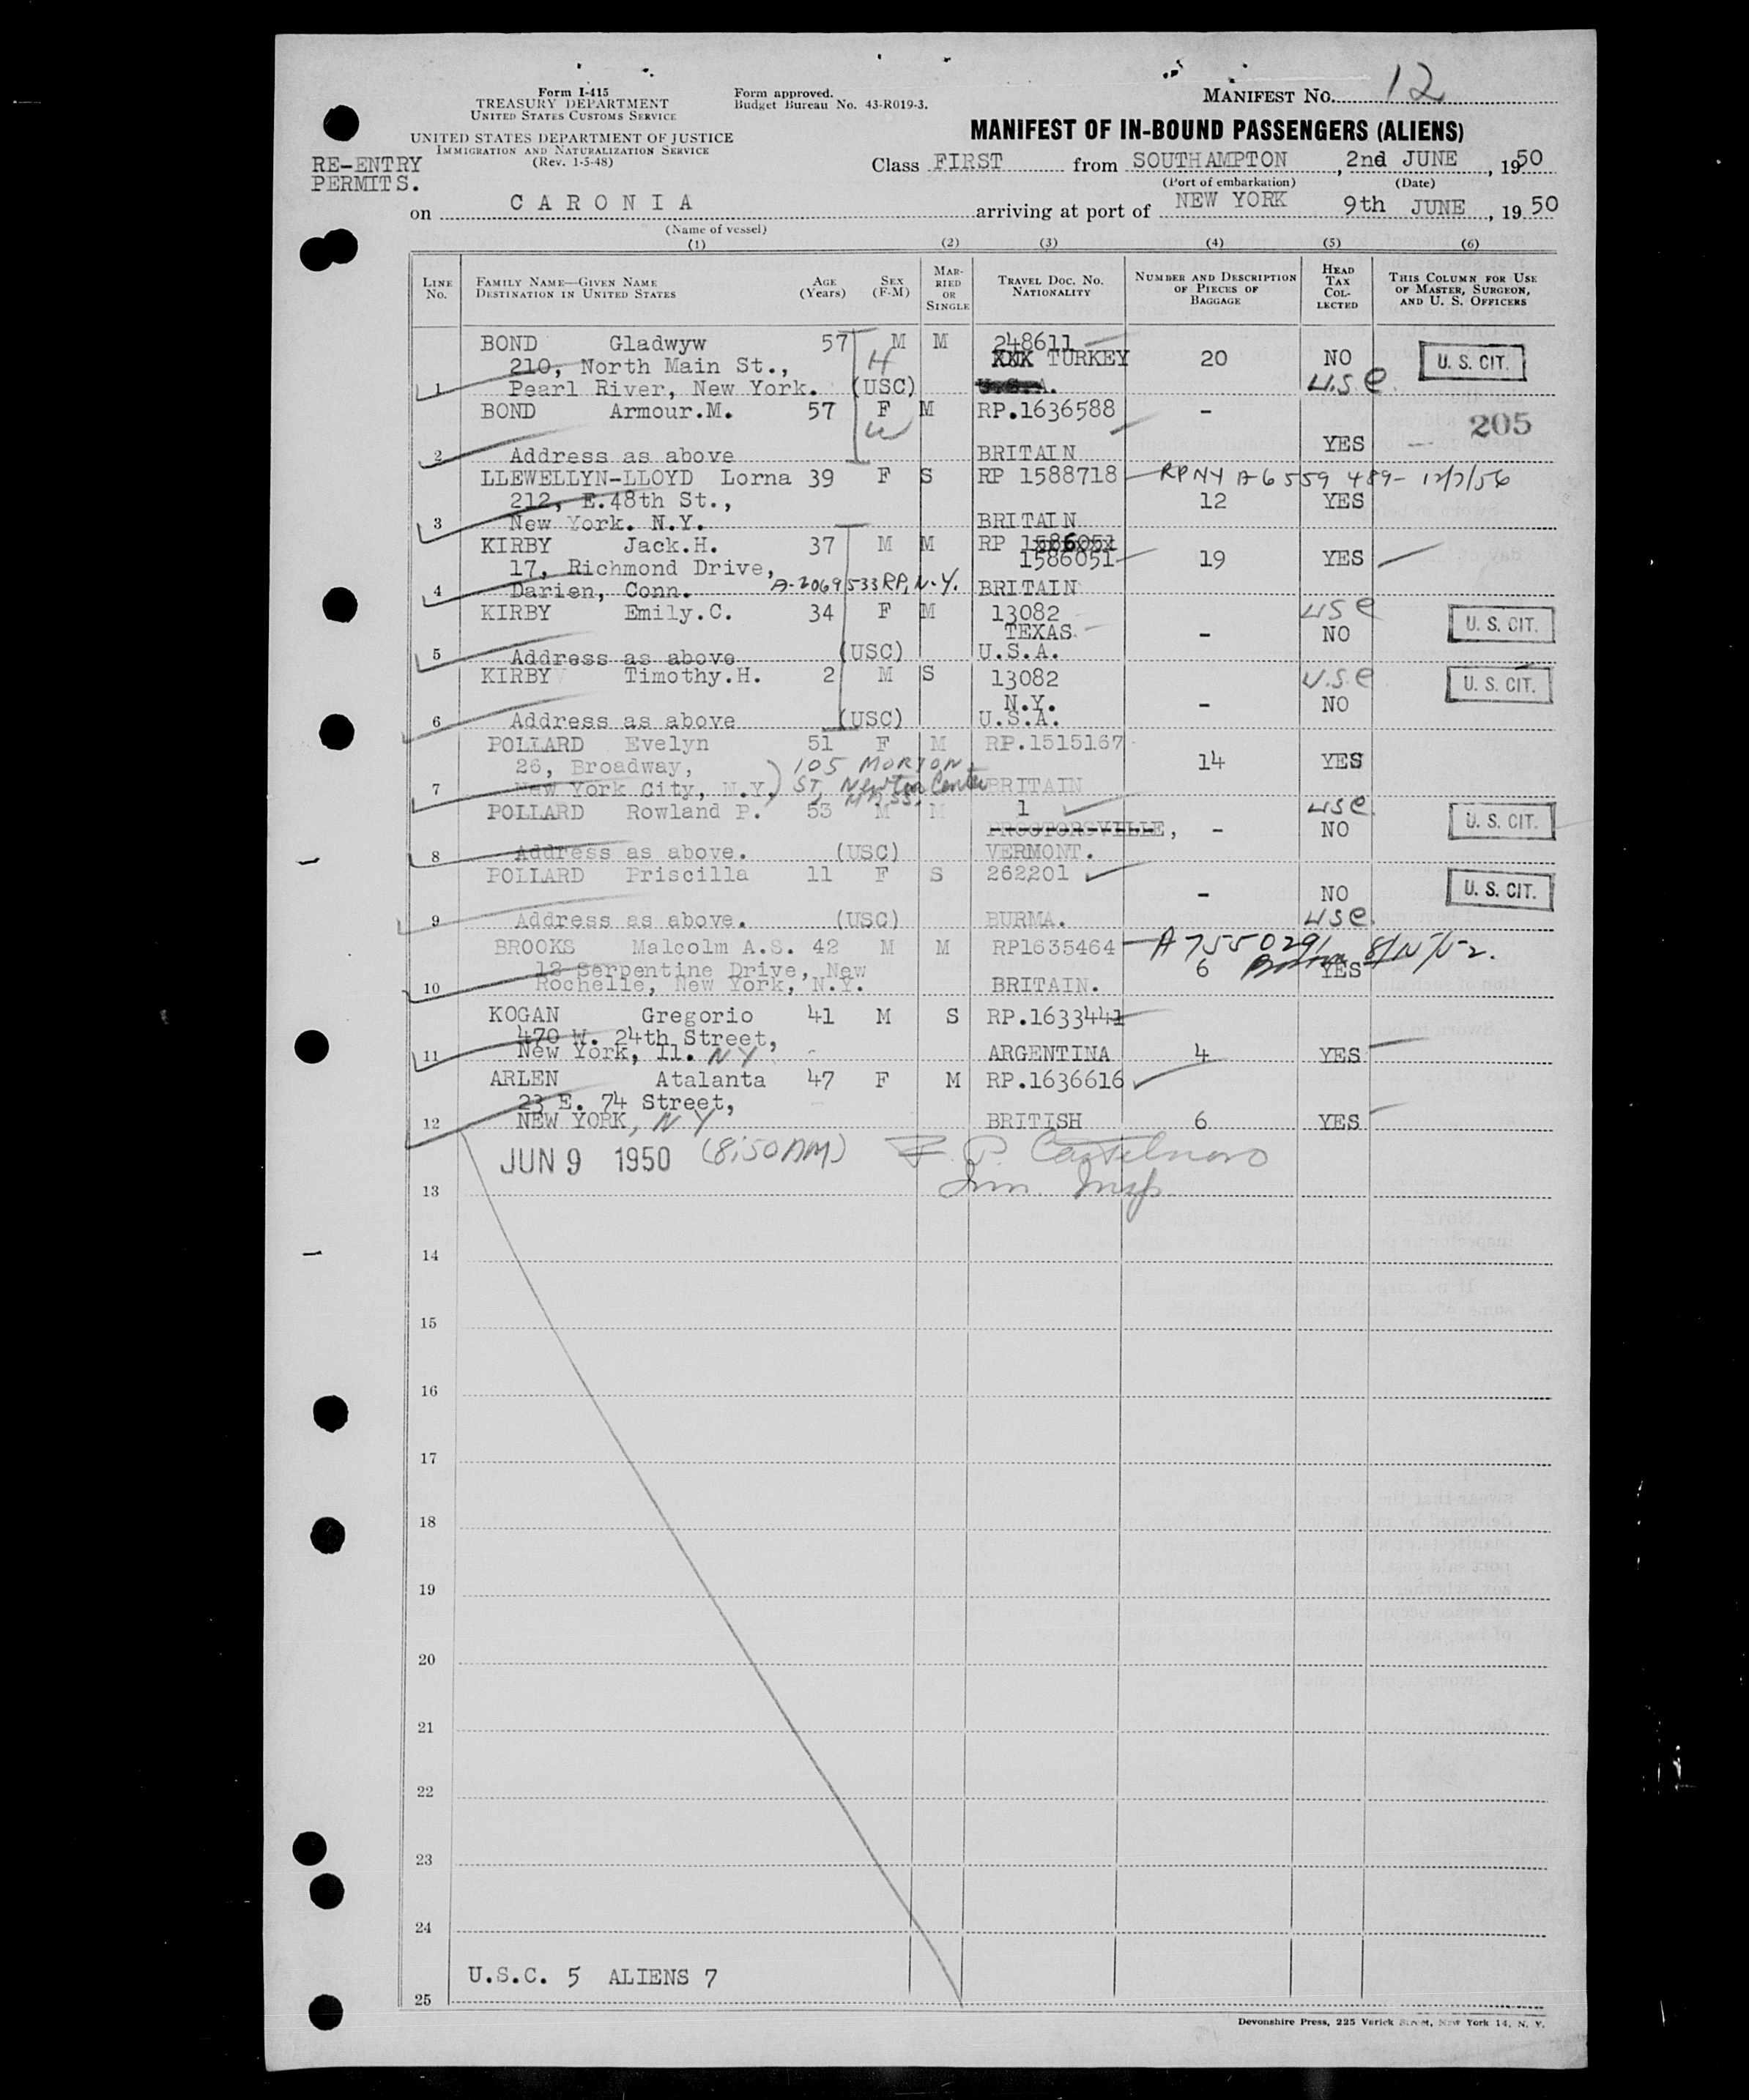 Form I-415
TREASURY DEPARTMENT
UNITED STATES CUSTOMS SERVICE
UNITED STATES DEPARTMENT OF JUSTICE
IMMIGRATION AND NATURALIZATION SERVICE
(Rev. 1-5-48)
Form approved.
Budget Bureau No. 43-R019-3.
MANIFEST NO. 12
MANIFEST OF IN-BOUND PASSENGERS (ALIENS)
RE-ENTRY
PERMITS.
Class FIRST from SOUTHAMPTON, 2nd JUNE, 1950
(Port of embarkation) (Date)
on CARONIA arriving at port of NEW YORK 9th JUNE, 1950
(Name of vessel)
(1) (2) (3) (4) (5) (6)
LINE No. FAMILY NAME—GIVEN NAME DESTINATION IN UNITED STATES AGE (Years) SEX (F-M) MARRIED OR SINGLE TRAVEL DOC. NO. NATIONALITY NUMBER AND DESCRIPTION OF PIECES OF BAGGAGE HEAD TAX COLLECTED THIS COLUMN FOR USE OF MASTER, SURGEON, AND U. S. OFFICERS
BOND Gladwyw 57 M M 248611
210, North Main St., H XXX TURKEY 20 NO U. S. CIT.
1 Pearl River, New York. (USC) U.S.A. U.S.C.
BOND Armour.M. 57 F M RP.1636588 - 205
W YES
2 Address as above BRITAIN
LLEWELLYN-LLOYD Lorna 39 F S RP 1588718 RPNY A-6559 489- 12/7/56
212, E.48th St., 12 YES
3 New York. N.Y. BRITAIN
KIRBY Jack.H. 37 M M RP 1586051
17, Richmond Drive, 1586051 19 YES
4 Darien, Conn. A-2069533 RP, N.Y. BRITAIN
KIRBY Emily.C. 34 F M 13082 USC
TEXAS - NO U. S. CIT.
5 Address as above (USC) U.S.A.
KIRBY Timothy.H. 2 M S 13082 U.S.C
N.Y. - NO U. S. CIT.
6 Address as above (USC) U.S.A.
POLLARD Evelyn 51 F M RP.1515167
26, Broadway, 105 MORTON 14 YES
7 New York City, N.Y. ST, Newton Center MASS. BRITAIN
POLLARD Rowland P. 53 M M 1 USC
PROCTORSVILLE, - NO U. S. CIT.
8 Address as above. (USC) VERMONT.
POLLARD Priscilla 11 F S 262201
- NO U. S. CIT.
9 Address as above. (USC) BURMA. USC.
BROOKS Malcolm A.S. 42 M M RP1635464 A 755029/ 8/15/52.
12 Serpentine Drive, New 6 YES
10 Rochelle, New York, N.Y. BRITAIN.
KOGAN Gregorio 41 M S RP.1633441
470 W. 24th Street,
11 New York, 11. NY ARGENTINA 4 YES
ARLEN Atalanta 47 F M RP.1636616
23 E. 74 Street,
12 NEW YORK, NY BRITISH 6 YES
JUN 9 1950 (8:50 AM) F. P. Castelnovo
13 Imm. Insp.
14
15
16
17
18
19
20
21
22
23
24
U.S.C. 5 ALIENS 7
25
Devonshire Press, 225 Varick Street, New York 14, N. Y.